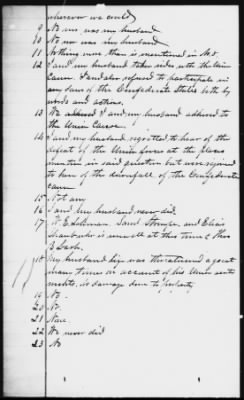 wherever we could
9 No nor was my husband
10 No nor was my husband
11 Nothing more than is mentioned in No 5.
12 I and my husband takes sides with the Union
Cause. I and also refused to participate in
any ... of the Confederate States both by
words and actions.
13 We adhered I and my husband adhered to
the Union Cause.
14 I and my husband regretted to hear of the
defeat of the Union forces at the places
mention in said question but were rejoiced
to hear of the downfall of the Confederate
cause
15 Not any
16 I and my husband never did.
17 ... and Elias
... who is unwell at this time &
18 My husband ... was threatened a great
many times on account of his Union senti
ments, no damage done to property
19 No.
20 No.
21 None
22 We never did
23 No